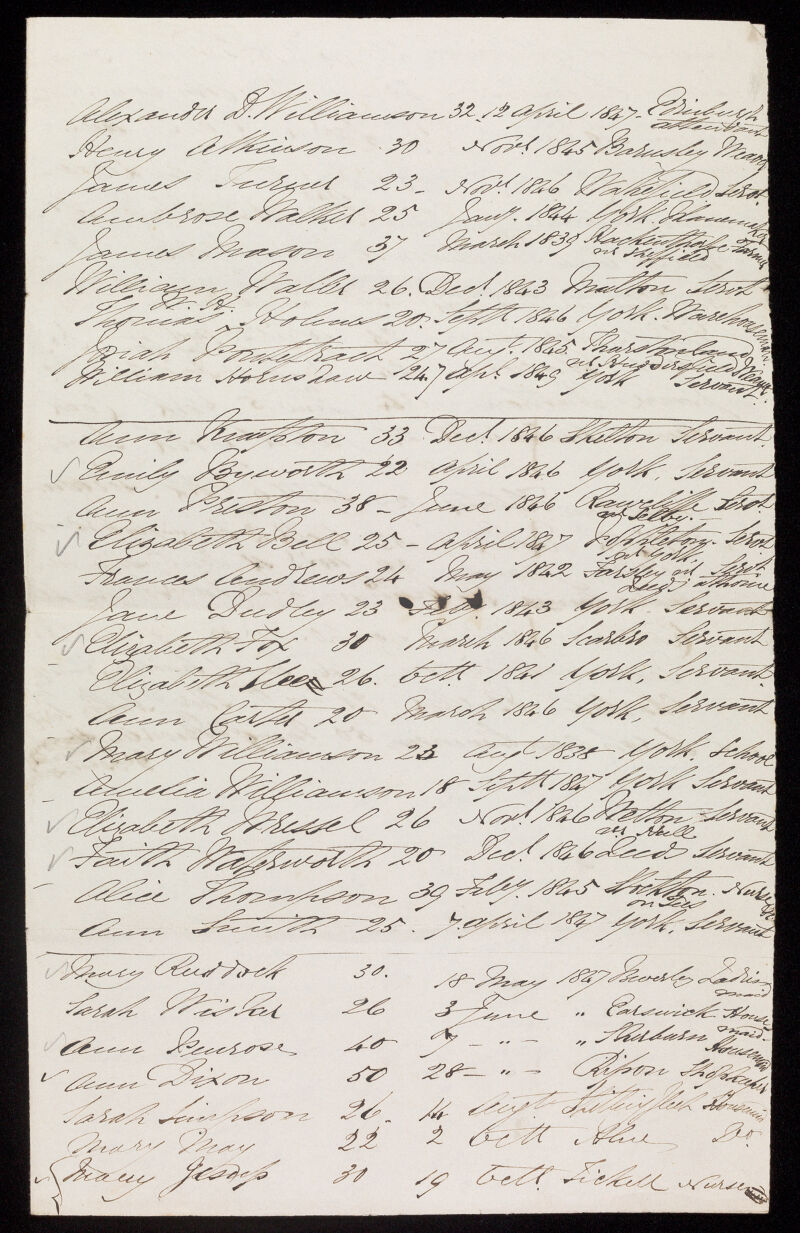 Alexander D. Williamson 32. 12 April 1847. Edinburgh attendant
Henry Atkinson 30 Novr. 1845 Barnsley Weaver
James Turner 23 - Novr. 1846 Wakefield Servt.
Ambrose Walker 25 Jany. 1844 York.
James Mason 37 March 1839 Hackenthorpe Farmer
nr Sheffield
William Waller 26. Decr. 1843 Malton Servt.
W. H.
Thomas Holmes 20. Septr. 1846 York. Warehouseman
Josiah Pontefract 27 Augt. 1845. Thurstonland
nr Huddersfield
William Hornsdaw 24 7 Apl. 1849 York Servant.
Ann 33 Decr. 1846 Skelton Servant.
Emily Byworth 22 April 1846 York. Servant
Ann Preston 38 - June 1846 Rawcliffe Servt.
nr Selby.
Elizabeth Bell 25 - April 1847 Poppleton. Servt
nr York.
Frances Andrews 24 May 1842 Farsley nr Leeds at home
Jane Dudley 23 Feby. 1843 York. Servant
Elizabeth Fox 30 March 1846 Scarbro Servant
Elizabeth 26. Octr. 1841 York, Servant.
Ann Carter 20 March 1846 York, Servant
Mary Williamson 23 Augt 1838 York. School
Amelia Williamson 18 Septr 1847 York Servant
Elizabeth Wressel 26 Novr. 1846 Welton Servant
nr Hull
Faith Waterworth 20 Decr. 1846 Leeds Servant
Alice Thompson 39 Feby. 1845 Stockton. Nurse
on Tees
Ann Smith 25. 7 April 1847 York, Servant
Mary Ruddock 30. 18 May 1847 Beverley Ladies maid
Sarah Wisker 26 3 June " Earswick House maid
Ann Penrose 40 7 - " - " Sherburn Housemaid
Ann Dixon 50 28 - " - Ripon Shopkeeper
Sarah Simpson 26. 14 Augt Housemaid
Mary May 22 2 Octr Alne Do.
Mary Jessop 30 19 Octr. Tickell Nurse